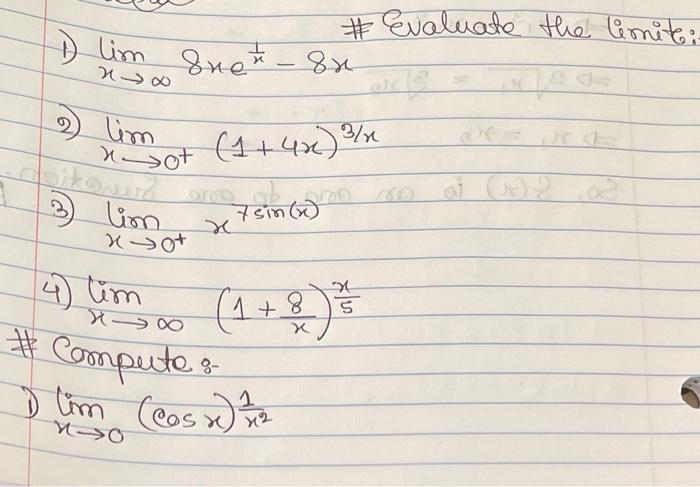 # Evaluate the limits:
1) lim x→∞ 8xe^(1/x) - 8x
2) lim x→0+ (1+4x)^(3/x)
3) lim x→0+ x^(7sin(x))
4) lim x→∞ (1+8/x)^(x/5)
# Compute :-
1) lim x→0 (cos x)^(1/x²)